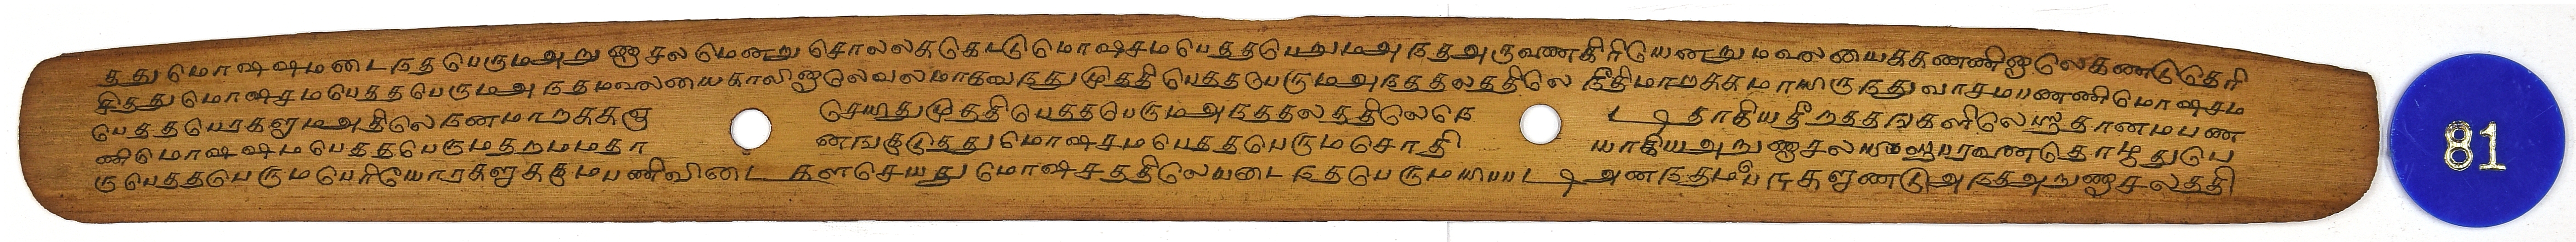 த்து மொஷஷமடைந்த பெரும அறுணாசலமென்று சொல்லக்கெட்டு மொஷசம பெத்தபெறும அந்த அருவணகிரியென்று மலையைக்கண்ணினாலெகண்டுதெரி
சித்து மொஷசம பெத்தபெரும அந்தமலையைகாலினாலெவலமாகவந்துமுத்தி பெத்தபெரும அந்தத்தலத்திலெ நீதிமாறக்கமாயிருந்துவாசமபண்ணி மொஷசம
பெத்தபெரகளும அதிலெ கனமாறக்கஞ செயுதுமுத்தி பெத்தபெரும அந்தத்தலத்திலெகெ ட்டிதாகியதீறத்தஙகளிலெஸதானமபண
ணி மொஷஷம பெத்தபெரும தறமமதா னஙகுடுத்து மொஷசம பெத்தபெரும சொதி யாகிய அறுணாசல தொழுதுபெ
ரு பெத்தபெரும பெரியொரகளுக்குமபணிவிடை கள செயது மொஷசத்திலெயடைந்தபெரும யிபபடி அனந்தம பெர்களுண்டு அந்த அறுணாசலத்தி
81